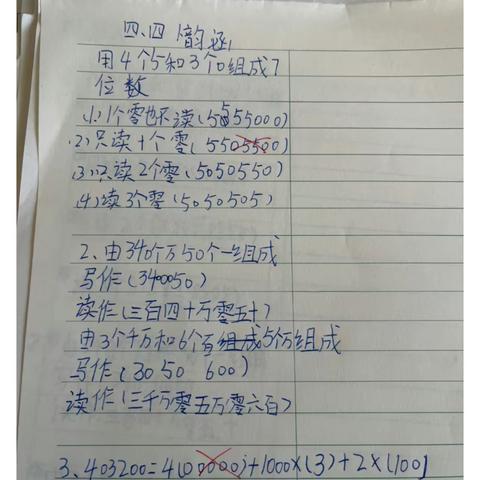 四、四 韵涵
用4个5和3个0组成7
位数
(1).1个零也不读(5555000)
(2)只读1个零(5505500)
(3).只读2个零(5050550)
(4)读3个零(5050505)
2、由340个万50个一组成
写作(3400050)
读作(三百四十万零五十)
由3个千万和6个百组成5个万组成
写作(3050 600)
读作(三千万零五万零六百)
3、403200=4(00000)+1000×(3)+2×(100)